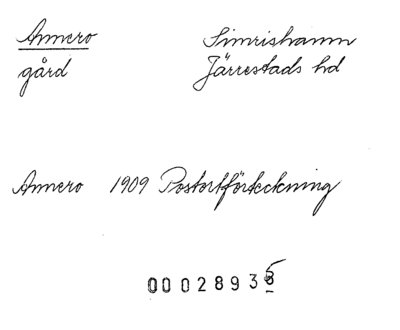 Annero Simrishamn
gård Järrestads hd
Annero 1909 Postortförteckning
00028935